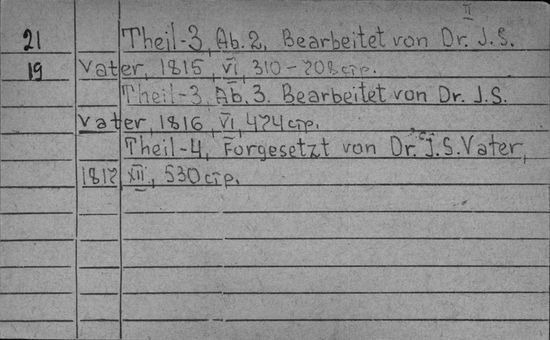 II
21 Theil-3, Ab. 2, Bearbeitet von Dr. J.S.
19 Vater, 1815, VI, 310-708 стр.
Theil-3, Ab. 3. Bearbeitet von Dr. J.S.
Vater, 1816, VI, 474 стр.
Theil-4, Forgesetzt von Dr. J.S. Vater,
1817, XII, 530 стр.